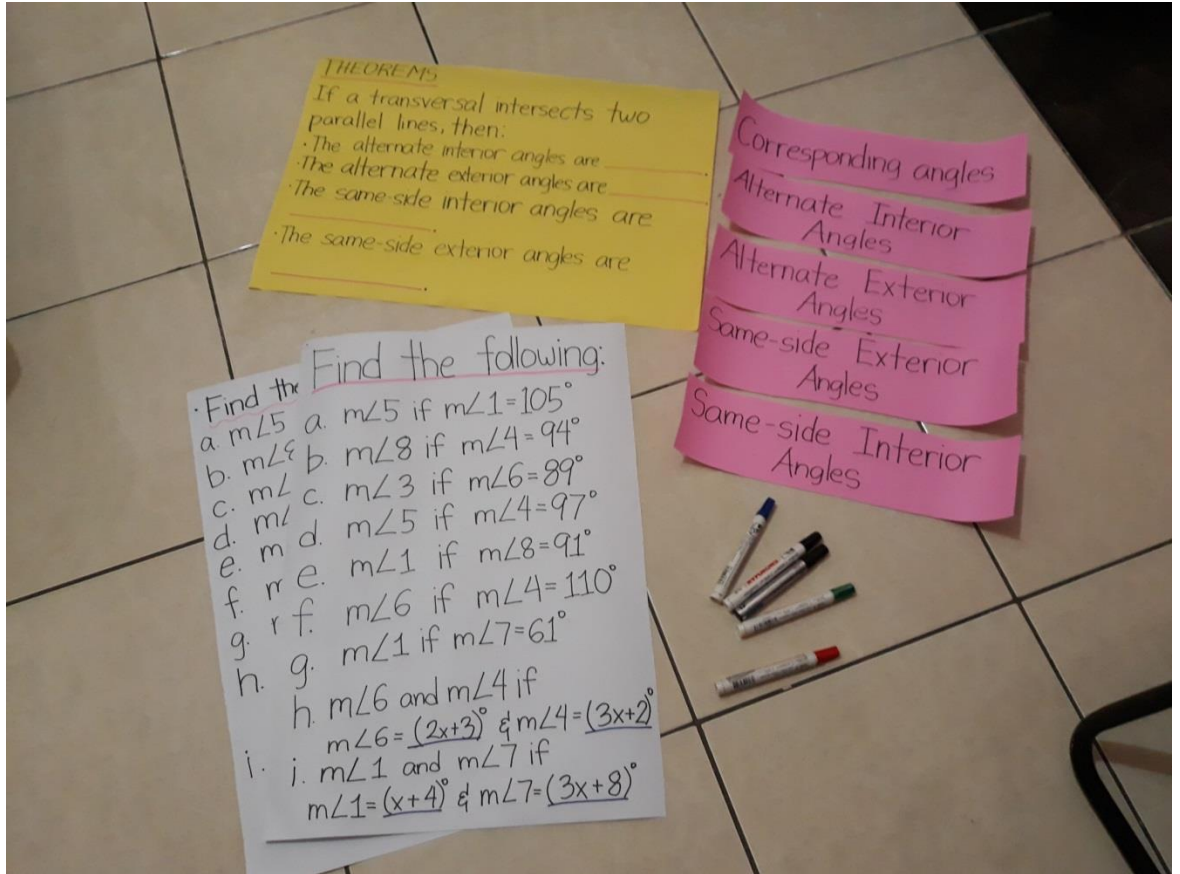 THEOREMS
If a transversal intersects two
parallel lines, then:
· The alternate interior angles are ________.
· The alternate exterior angles are ________.
· The same-side interior angles are
________.
· The same-side exterior angles are
________.
Corresponding angles
Alternate Interior
Angles
Alternate Exterior
Angles
Same-side Exterior
Angles
Same-side Interior
Angles
· Find the
a. m∠5
b. m∠
c. m∠
d. m
e. m
f.
g.
h.
i.
Find the following:
a. m∠5 if m∠1=105°
b. m∠8 if m∠4=94°
c. m∠3 if m∠6=89°
d. m∠5 if m∠4=97°
e. m∠1 if m∠8=91°
f. m∠6 if m∠4=110°
g. m∠1 if m∠7=61°
h. m∠6 and m∠4 if
m∠6=(2x+3)° & m∠4=(3x+2)°
i. m∠1 and m∠7 if
m∠1=(x+4)° & m∠7=(3x+8)°